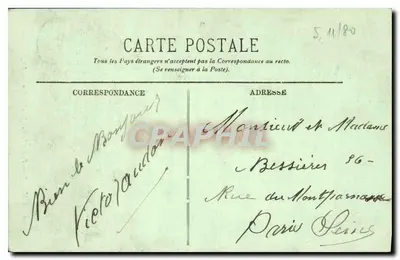 5.11/80
CARTE POSTALE
Tous les Pays étrangers n'acceptent pas la Correspondance au recto.
(Se renseigner à la Poste).
CORRESPONDANCE
ADRESSE
Bien le Bonjour
Monsieur et Madame
Bessières 26-
Rue du Montparnasse
Paris Seine
CPARAMA